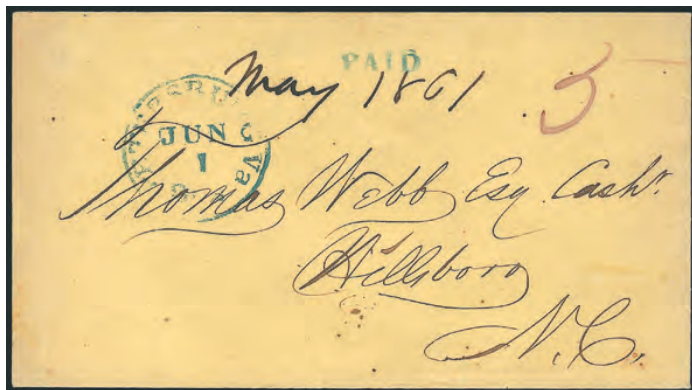 PAID
May 1861
5
JUN
1
Va
Thomas Webb Esq Cashr
Hillsboro
N.C.